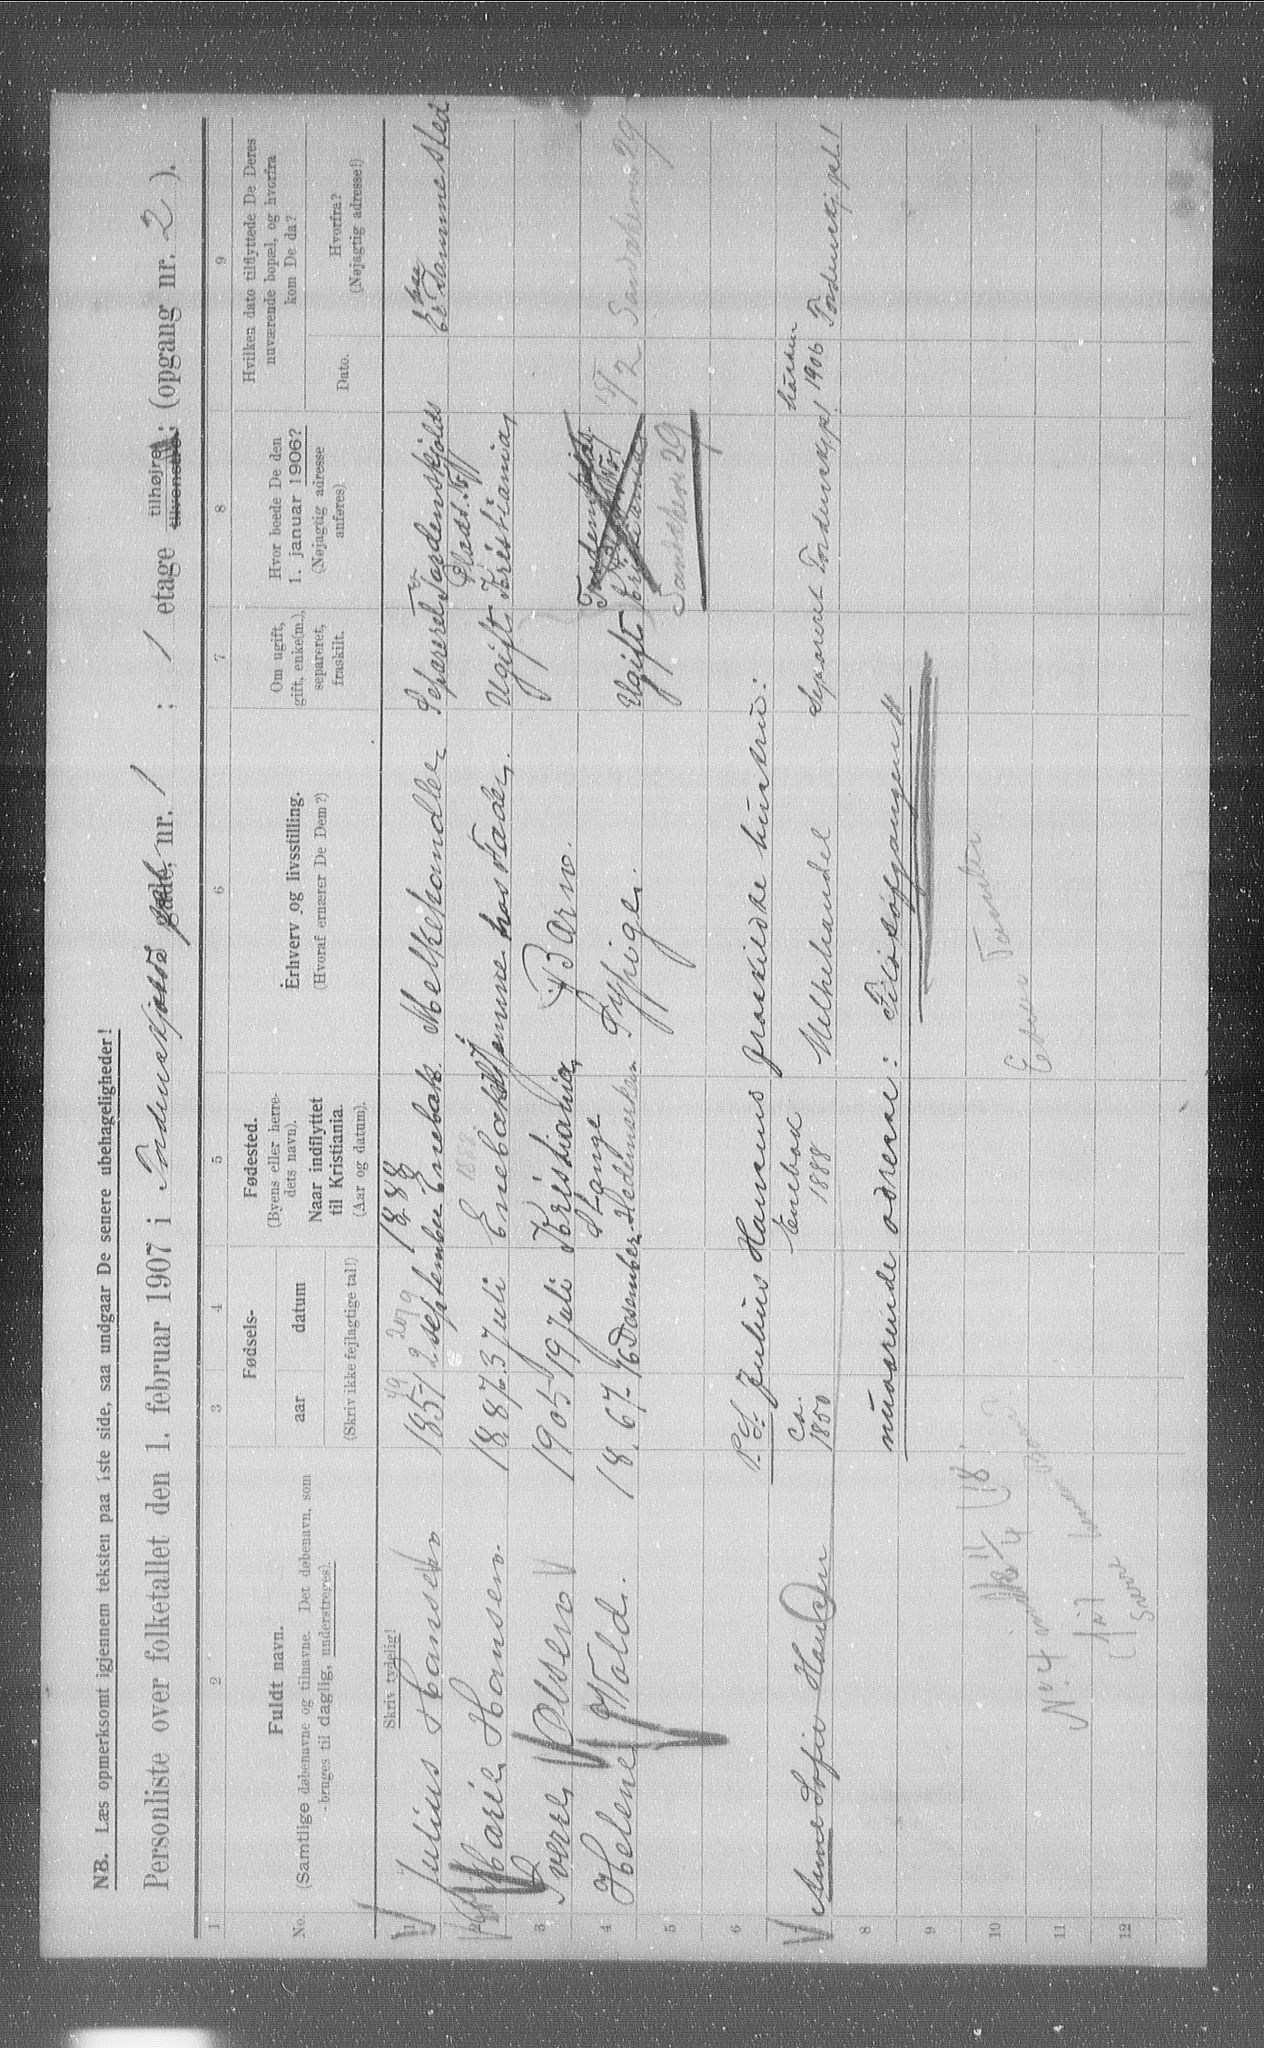 NB. Læs opmerksomt igjennem teksten paa 1ste side, saa undgaar De senere ubehageligheder!
Personliste over folketallet den 1. februar 1907 i Tordenskjolds gade, nr. 1 ; 1 etage tilhøjre tilvenstre; (opgang nr. 2 ).
1 2 3 4 5 6 7 8 9
No.
Fuldt navn.
(Samtlige døbenavne og tilnavne. Det døbenavn, som
bruges til daglig, understreges).
Skriv tydelig!
Fødsels-
aar datum
(Skriv ikke fejlagtige tal!)
Fødested.
(Byens eller herre-
dets navn).
Naar indflyttet
til Kristiania.
(Aar og datum).
Erhverv og livsstilling.
(Hvoraf ernærer De Dem?)
Om ugift,
gift, enke(m.),
separeret,
fraskilt.
Hvor boede De den
1. januar 1906?
(Nøjagtig adresse
anføres).
Hvilken dato tilflyttede De Deres
nuværende bopæl, og hvorfra
kom De da?
Dato.
Hvorfra?
(Nøjagtig adresse!)
1888
1 Julius Hansen 1851 2 september Enebak Melkehandler Separeret Tordenskjolds samme sted
Plads No 1
2 Marie Hansen 1887 3 Juli Enebak Hjemme hos Fader. Ugift Kristiania
3 Sverre Olsen 1905 19 Juli Kristiania Barn.
Stange
4 Helene Wold. 1867 16 Desember Hedemarken Sypige. Ugift Kristiania 15/2 Sandakerv 29
5 Sandakerv 29
6 P.S. Julius Hansens fraskildte hustru:
7 Anne Sofie Hansen ca. 1850 Enebak 1888 Melkehandel Separeret Tordenskj.pl 1 høsten 1906 Tordenskj.pl. 1
8 nuværende adresse: Filosofgangen 11
9
10
11 No. 4
12